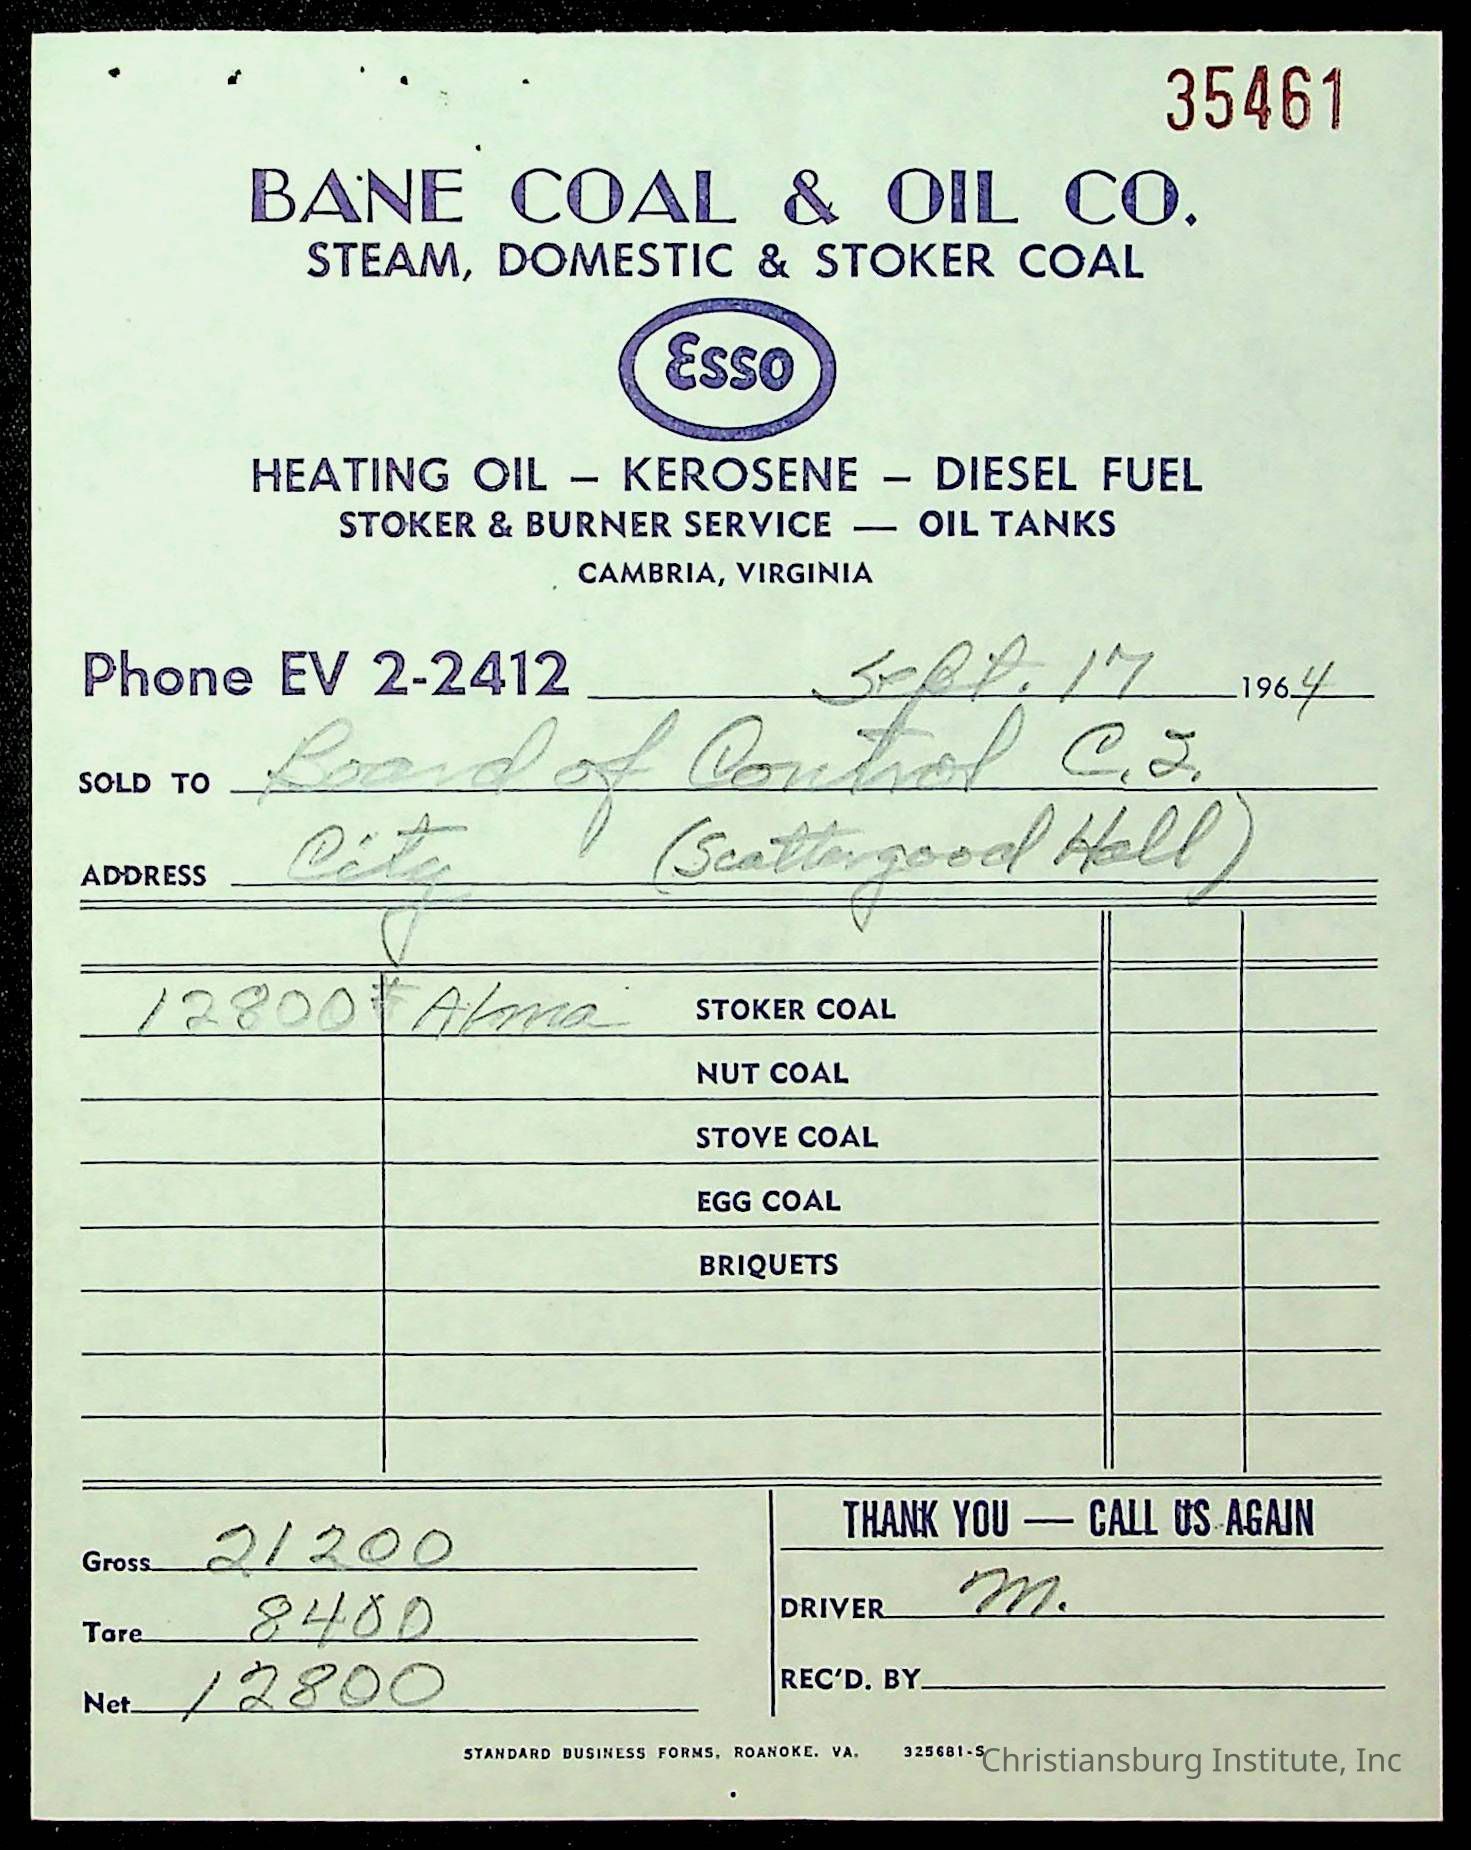 35461
BANE COAL & OIL CO.
STEAM, DOMESTIC & STOKER COAL
Esso
HEATING OIL – KEROSENE – DIESEL FUEL
STOKER & BURNER SERVICE — OIL TANKS
CAMBRIA, VIRGINIA
Phone EV 2-2412 Sept. 17 1964
SOLD TO Board of Control C.I.
ADDRESS City (Scattergood Hall)
12800# Alma STOKER COAL
NUT COAL
STOVE COAL
EGG COAL
BRIQUETS
Gross 21200
Tare 8400
Net 12800
THANK YOU — CALL US AGAIN
DRIVER M.
REC'D. BY
STANDARD BUSINESS FORMS, ROANOKE, VA. 325681-S
Christiansburg Institute, Inc